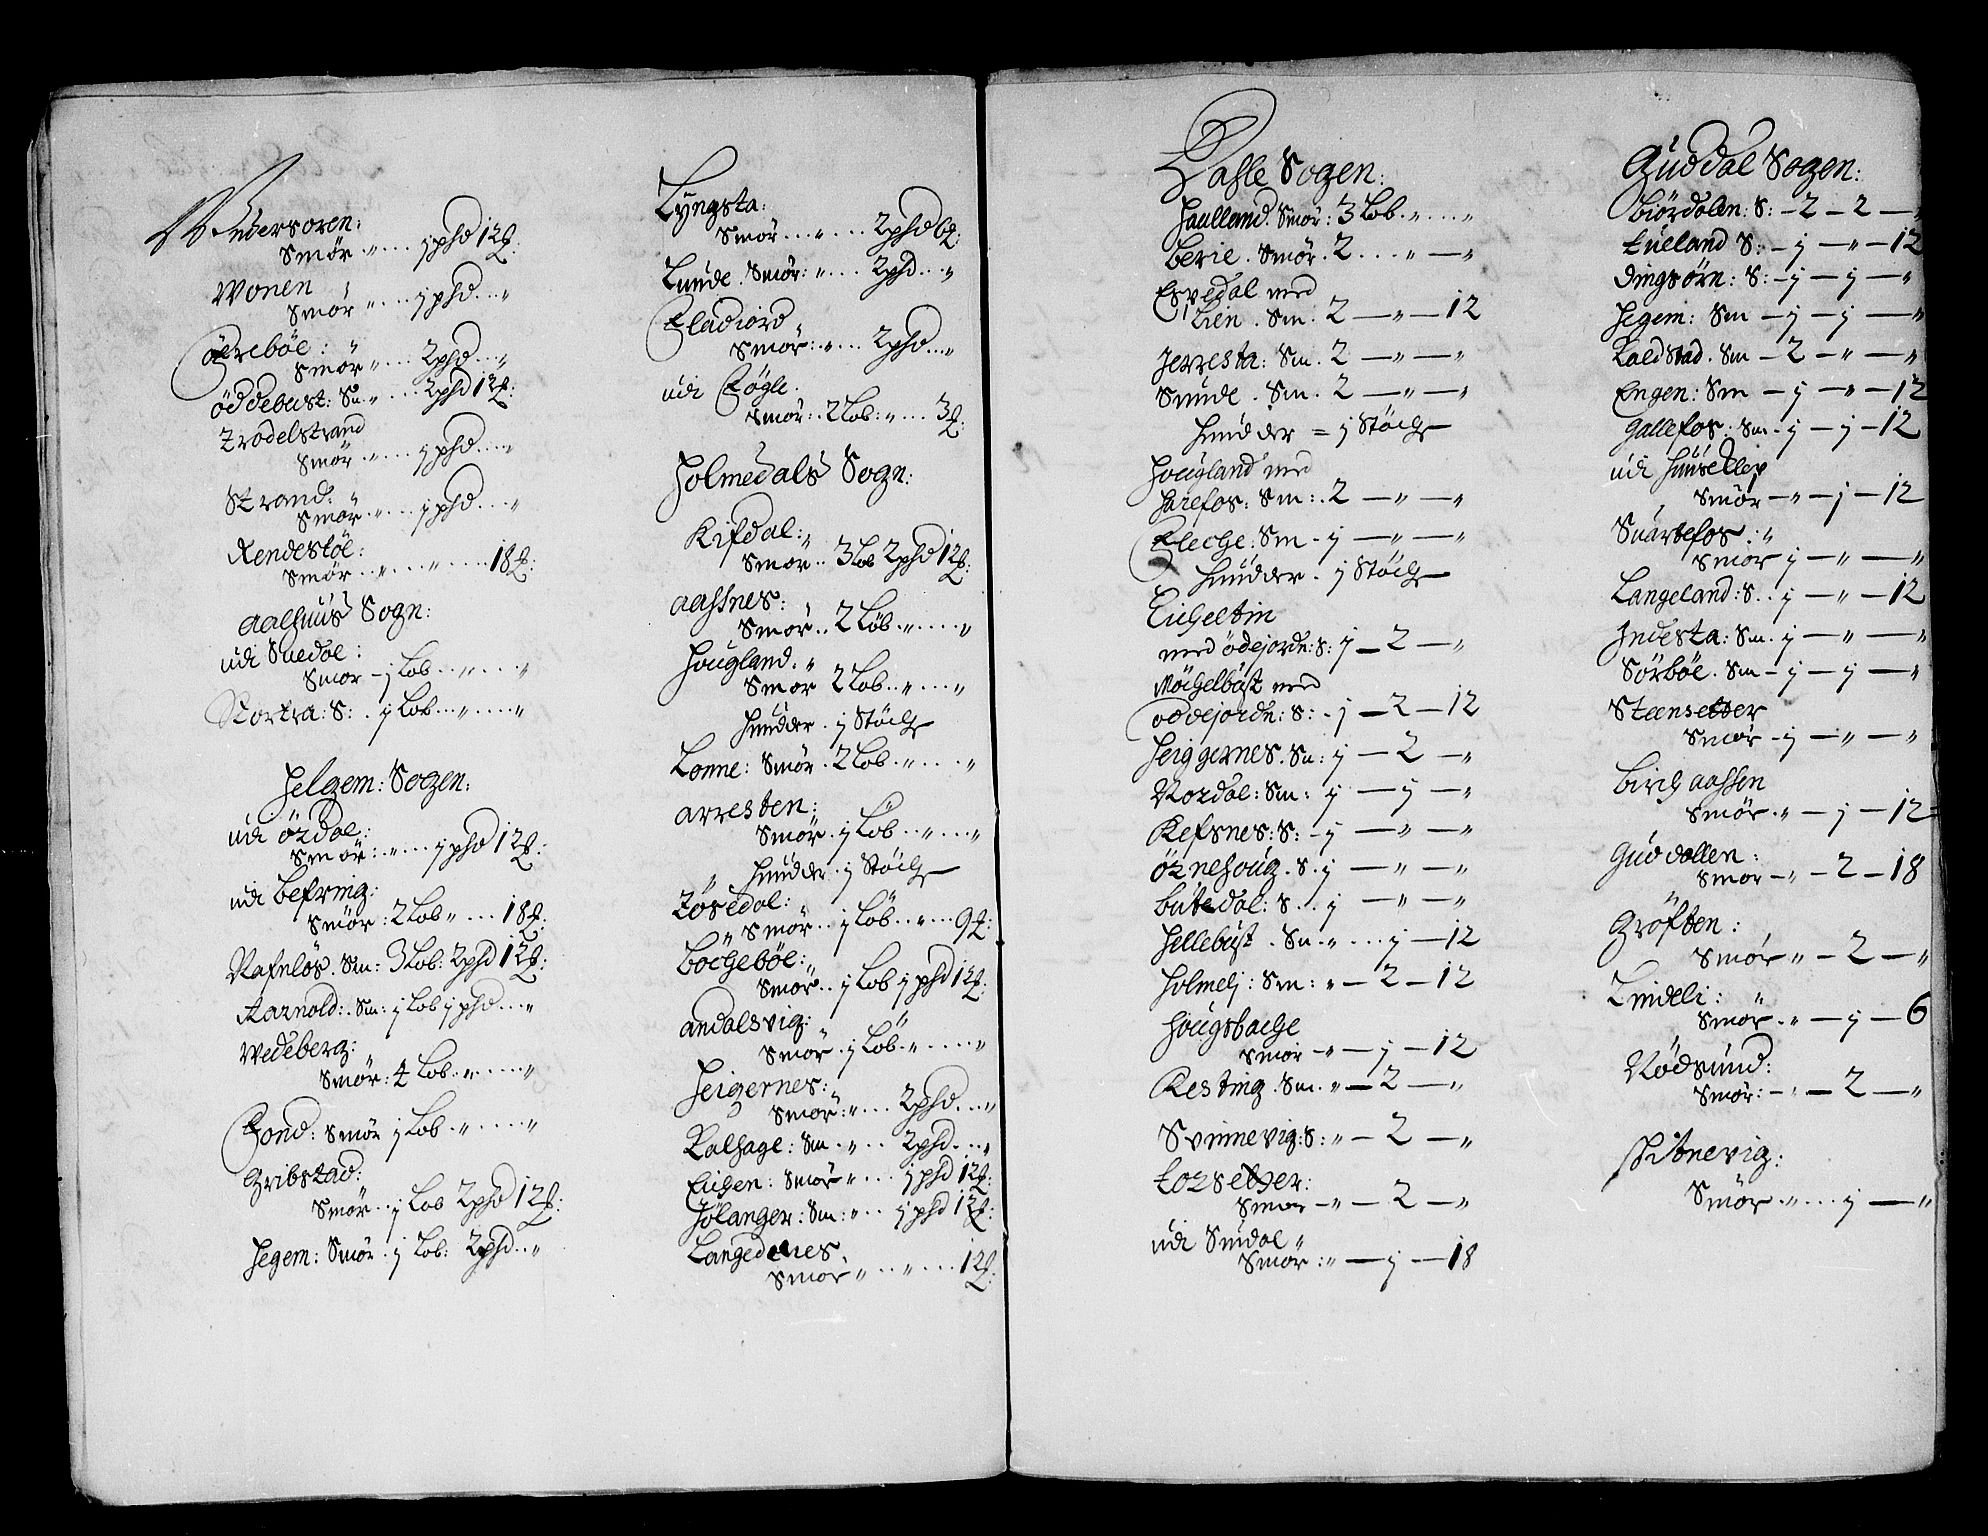 Andersoren:
Smör „ .... j phd 12 ℔:
Wonen „
Smör „ .... j phd ... „
öfreböe: „
Smör „ ... 2 phd ... „
öddebust: Sm „ ... 2 phd 12 ℔:
Trodelstrand
Smör „ .... j phd .... „
Strand: „
Smör „ .... j phd .... „
Rendestöl:
Smör .. „ ..... „ ..... 18 ℔:
Aalhuus Sogn:
udi Suedöe:
Smor – j Lob .. „ ..... „
Stortra: S: . j Lob ... „ ..... „
Helgem: Sogen:
udi özdal:
Smör: . „ .... j phd 12 ℔:
udi Befring:
Smör: 2 Lob „ .... 18 ℔:
Rafnlös. Sm: 3 Lob: 2 phd 12 ℔:
Aarnold: . Sm: j Lob j phd .... „
Wedeberg:
Smör: 4 Lob .. „ ..... „
Fond: Smör j Lob . „ ..... „
Gribstad:
Smör .. j Lob 2 phd 12 ℔:
Hegem: Smör . j Lob: 2 phd .. „
Lyngsta:
Smör ... „ ... 2 phd 6 ℔:
Lunde. Smör: „ .... 2 phd ... „
Fladiord
Smör: . „ .... 2 phd ... „
udi Fögle.
Smör: . 2 Lob: „ .... 3 ℔:
Holmedals Sogn:
Kifdal: „
Smör .. 3 Lob 2 phd 12 ℔:
Aassnes:
Smör .. 2 Löb . „ ..... „
Hougland. „
Smor 2 Lob .. „ .... „
Huuder . j Stöch
Lonne: Smör . 2 Lob . „ .... „
Arresten:
Smör . j Löb .. „ .... „
„ Huuder . j Stöch
Tösedal: „
„ Smör .. j Löb .. „ ... 9 ℔:
Böcheböe: „
Smör .. j Lob j phd 12 ℔:
Andalsvig:
Smör . j Löb . „ ..... „
Heigernes:
Smör: „ ... 2 phd ... „
Kalhage: Sm . „ .. 2 phd .... „
Eichen: Smör „ ... j phd 12 ℔:
Hölanger: Sm: „ .. j phd 12 ℔:
Langednes.
Smör „ .. „ .... 12 ℔:
Dahle Sogen:
Haulland. Smör: 3 Lob . „ .... „
Berie. Smör. 2 ... „ — „
Espedal med
Lien. Sm. 2 — „ — 12
Jerresta: Sm. 2 — „ — „
Sunde. Sm. 2 — „ — „
Huuder = j Stöch
Hougland med
Harefos: Sm: . 2 — „ — „
Fleche: Sm – j — „ — „
Huuder . j Stöch
Eicheltin
med ödejorde: S: j — 2 — „
Möchelbust med
oddejorde: S: . j — 2 — 12
Heiggernes. Sm: j — 2 — „
Nordal: Sm: j — j — „
Refsnes: S: – j — „ — „
öznehoug. S. j — „ — „
Butedal: S .. j — „ — „
Hellebust . Sm . „ ... j — 12
Holmelj: Sm: „ — 2 — 12
Hougsbache
Smör – „ — j — 12
Resting. Sm. „ — 2 — „
Svinnevig: S: „ — 2 — „
Torsetter:
Smor – „ — 2 — „
udi Sundal „
Smör: „ — j — 18
Guddal Sogen:
Biördalen: S: – 2 – 2 — „
Tueland S: – j — „ — 12
Dingsörn: S: – j — j — „
Hegem: Sm – j — j — „
Kaldstad. Sm – 2 — „ — „
Engen: Sm – j — „ — 12
Gallefos: Sm – j — j — 12
udi Huuseklep
Smör – „ — j — 12
Suartefos: „
Smör j — „ — „
Langeland: S. . j — „ — 12
Indesta: Sm. j — „ — „
Sörböe. Sm – j — j — „
Steensetter
Smör – j — „ — „
Birchaassen
Smör . „ — j — 12
Guddallen:
Smör – „ — 2 — 18
Gröften:
Smör „ — 2 — „
Lindeli: „
Smör . „ — j — 6
Nödsund:
Smör: – „ — 2 — „
Sitnevig:
Smör „ .... j — „